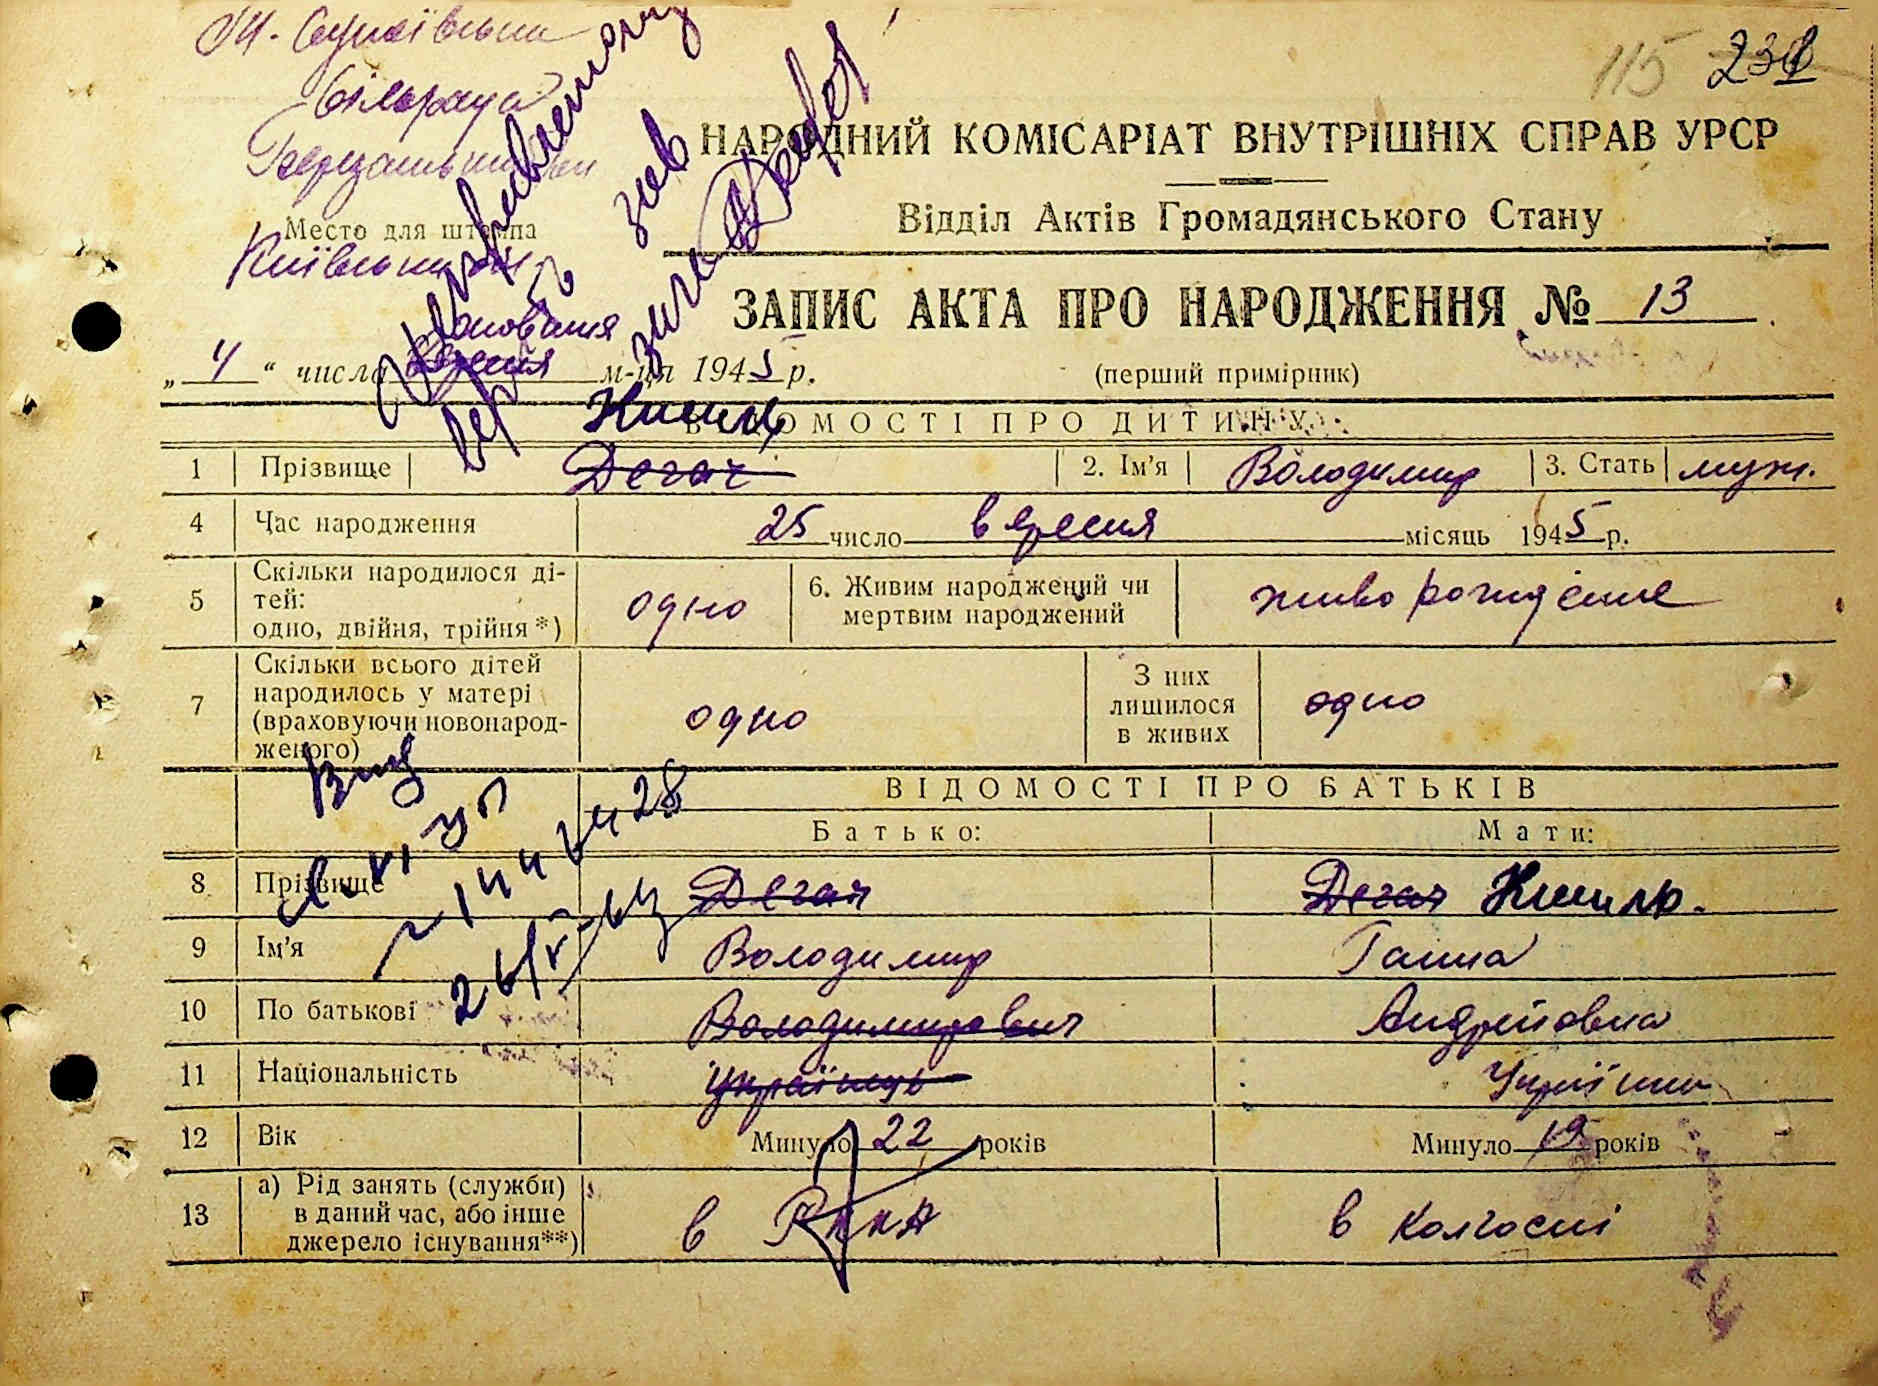 115 231
НАРОДНИЙ КОМІСАРІАТ ВНУТРІШНІХ СПРАВ УРСР
Відділ Актів Громадянського Стану
Место для штампа
Київської
ЗАПИС АКТА ПРО НАРОДЖЕННЯ № 13
„ 4 “ числа жовтня м-ця 1945 р.
(перший примірник)
Кисиль
ВІДОМОСТІ ПРО ДИТИНУ
1 Прізвище Дегач 2. Ім’я Володимир 3. Стать муж.
4 Час народження 25 число вересня місяць 1945 р.
5 Скільки народилося ді-
тей:
одно, двійня, трійня*) одно 6. Живим народжений чи
мертвим народжений живо рождение
7 Скільки всього дітей
народилось у матері
(враховуючи новонарод-
женого) одно З них
лишилося
в живих одно
ВІДОМОСТІ ПРО БАТЬКІВ
Батько: Мати:
8 Прізвище Дегач Дегач Кисиль.
9 Ім’я Володимир Ганна
10 По батькові Володимирович Андрейовна
11 Національність Українець Українка
12 Вік Минуло 22 років Минуло 19 років
13 а) Рід занять (служби)
в даний час, або інше
джерело існування**) в РККА в колгоспі